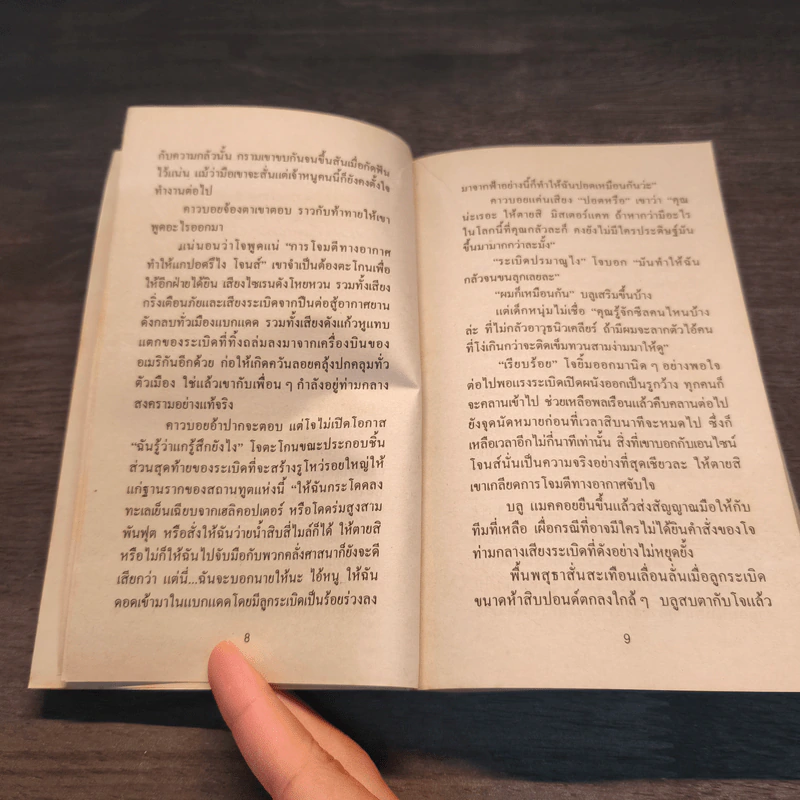 กับความกลัวนั้น กรามเขาขบกันจนขึ้นสันเมื่อกัดฟัน
ไว้แน่น แม้ว่ามือเขาจะสั่นแต่เจ้าหนูคนนี้ก็ยังคงตั้งใจ
ทำงานต่อไป
คาวบอยจ้องตาเขาตอบ ราวกับท้าทายให้เขา
พูดอะไรออกมา
แน่นอนว่าโจพูดแน่ "การโจมตีทางอากาศ
ทำให้แกปอดรึไง โจนส์" เขาจำเป็นต้องตะโกนเพื่อ
ให้อีกฝ่ายได้ยิน เสียงไซเรนดังโหยหวน รวมทั้งเสียง
กริ่งเตือนภัยและเสียงระเบิดจากปืนต่อสู้อากาศยาน
ดังกลบทั่วเมืองแบกแดด รวมทั้งเสียงดังแก้วหูแทบ
แตกของระเบิดที่ทิ้งถล่มลงมาจากเครื่องบินของ
อเมริกันอีกด้วย ก่อให้เกิดควันลอยคลุ้งปกคลุมทั่ว
ตัวเมือง ใช่แล้วเขากับเพื่อนๆ กำลังอยู่ท่ามกลาง
สงครามอย่างแท้จริง
คาวบอยอ้าปากจะตอบ แต่โจไม่เปิดโอกาส
"ฉันรู้ว่าแกรู้สึกยังไง" โจตะโกนขณะประกอบชิ้น
ส่วนสุดท้ายของระเบิดที่จะสร้างรูโหว่รอยใหญ่ให้
แก่ฐานรากของสถานทูตแห่งนี้ "ให้ฉันกระโดดลง
ทะเลเย็นเฉียบจากเฮลิคอปเตอร์ หรือโดดร่มสูงสาม
พันฟุต หรือสั่งให้ฉันว่ายน้ำสิบสี่ไมล์ก็ได้ ให้ตายสิ
หรือไม่ก็ให้ฉันไปจับมือกับพวกคลั่งศาสนาก็ยังจะดี
เสียกว่า แต่นี่...ฉันจะบอกนายให้นะ ไอ้หนู ให้ฉัน
ดอดเข้ามาในแบกแดดโดยมีลูกระเบิดเป็นร้อยร่วงลง
8
มาจากฟ้าอย่างนี้ก็ทำให้ฉันปอดเหมือนกันว่ะ"
คาวบอยแค่นเสียง "ปอดหรือ" เขาว่า "คุณ
น่ะเรอะ ให้ตายสิ มิสเตอร์แคท ถ้าหากว่ามีอะไร
ในโลกนี้ที่คุณกลัวละก็ คงยังไม่มีใครประดิษฐ์มัน
ขึ้นมามากกว่าละมั้ง"
"ระเบิดปรมาณูไง" โจบอก "มันทำให้ฉัน
กลัวจนขนลุกเลยละ"
"ผมก็เหมือนกัน" บลูเสริมขึ้นบ้าง
แต่เด็กหนุ่มไม่เชื่อ "คุณรู้จักซีลคนไหนบ้าง
ล่ะ ที่ไม่กลัวอาวุธนิวเคลียร์ ถ้ามีผมจะลากตัวไอ้คน
ที่โง่เกินกว่าจะติดเข็มทวนสามง่ามมาให้ดู"
"เรียบร้อย" โจยิ้มออกมานิดๆ อย่างพอใจ
ต่อไปพอแรงระเบิดเปิดผนังออกเป็นรูกว้าง ทุกคนก็
จะคลานเข้าไป ช่วยเหลือพลเรือนแล้วคืบคลานต่อไป
ยังจุดนัดหมายก่อนที่เวลาสิบนาทีจะหมดไป ซึ่งก็
เหลือเวลาอีกไม่กี่นาทีเท่านั้น สิ่งที่เขาบอกกับเอนไซน์
โจนส์นั่นเป็นความจริงอย่างที่สุดเชียวละ ให้ตายสิ
เขาเกลียดการโจมตีทางอากาศจับใจ
บลู แมคคอยยืนขึ้นแล้วส่งสัญญาณมือให้กับ
ทีมที่เหลือ เผื่อกรณีที่อาจมีใครไม่ได้ยินคำสั่งของโจ
ท่ามกลางเสียงระเบิดที่ดังอย่างไม่หยุดยั้ง
พื้นพสุธาสั่นสะเทือนเลื่อนลั่นเมื่อลูกระเบิด
ขนาดห้าสิบปอนด์ตกลงใกล้ๆ บลูสบตากับโจแล้ว
9